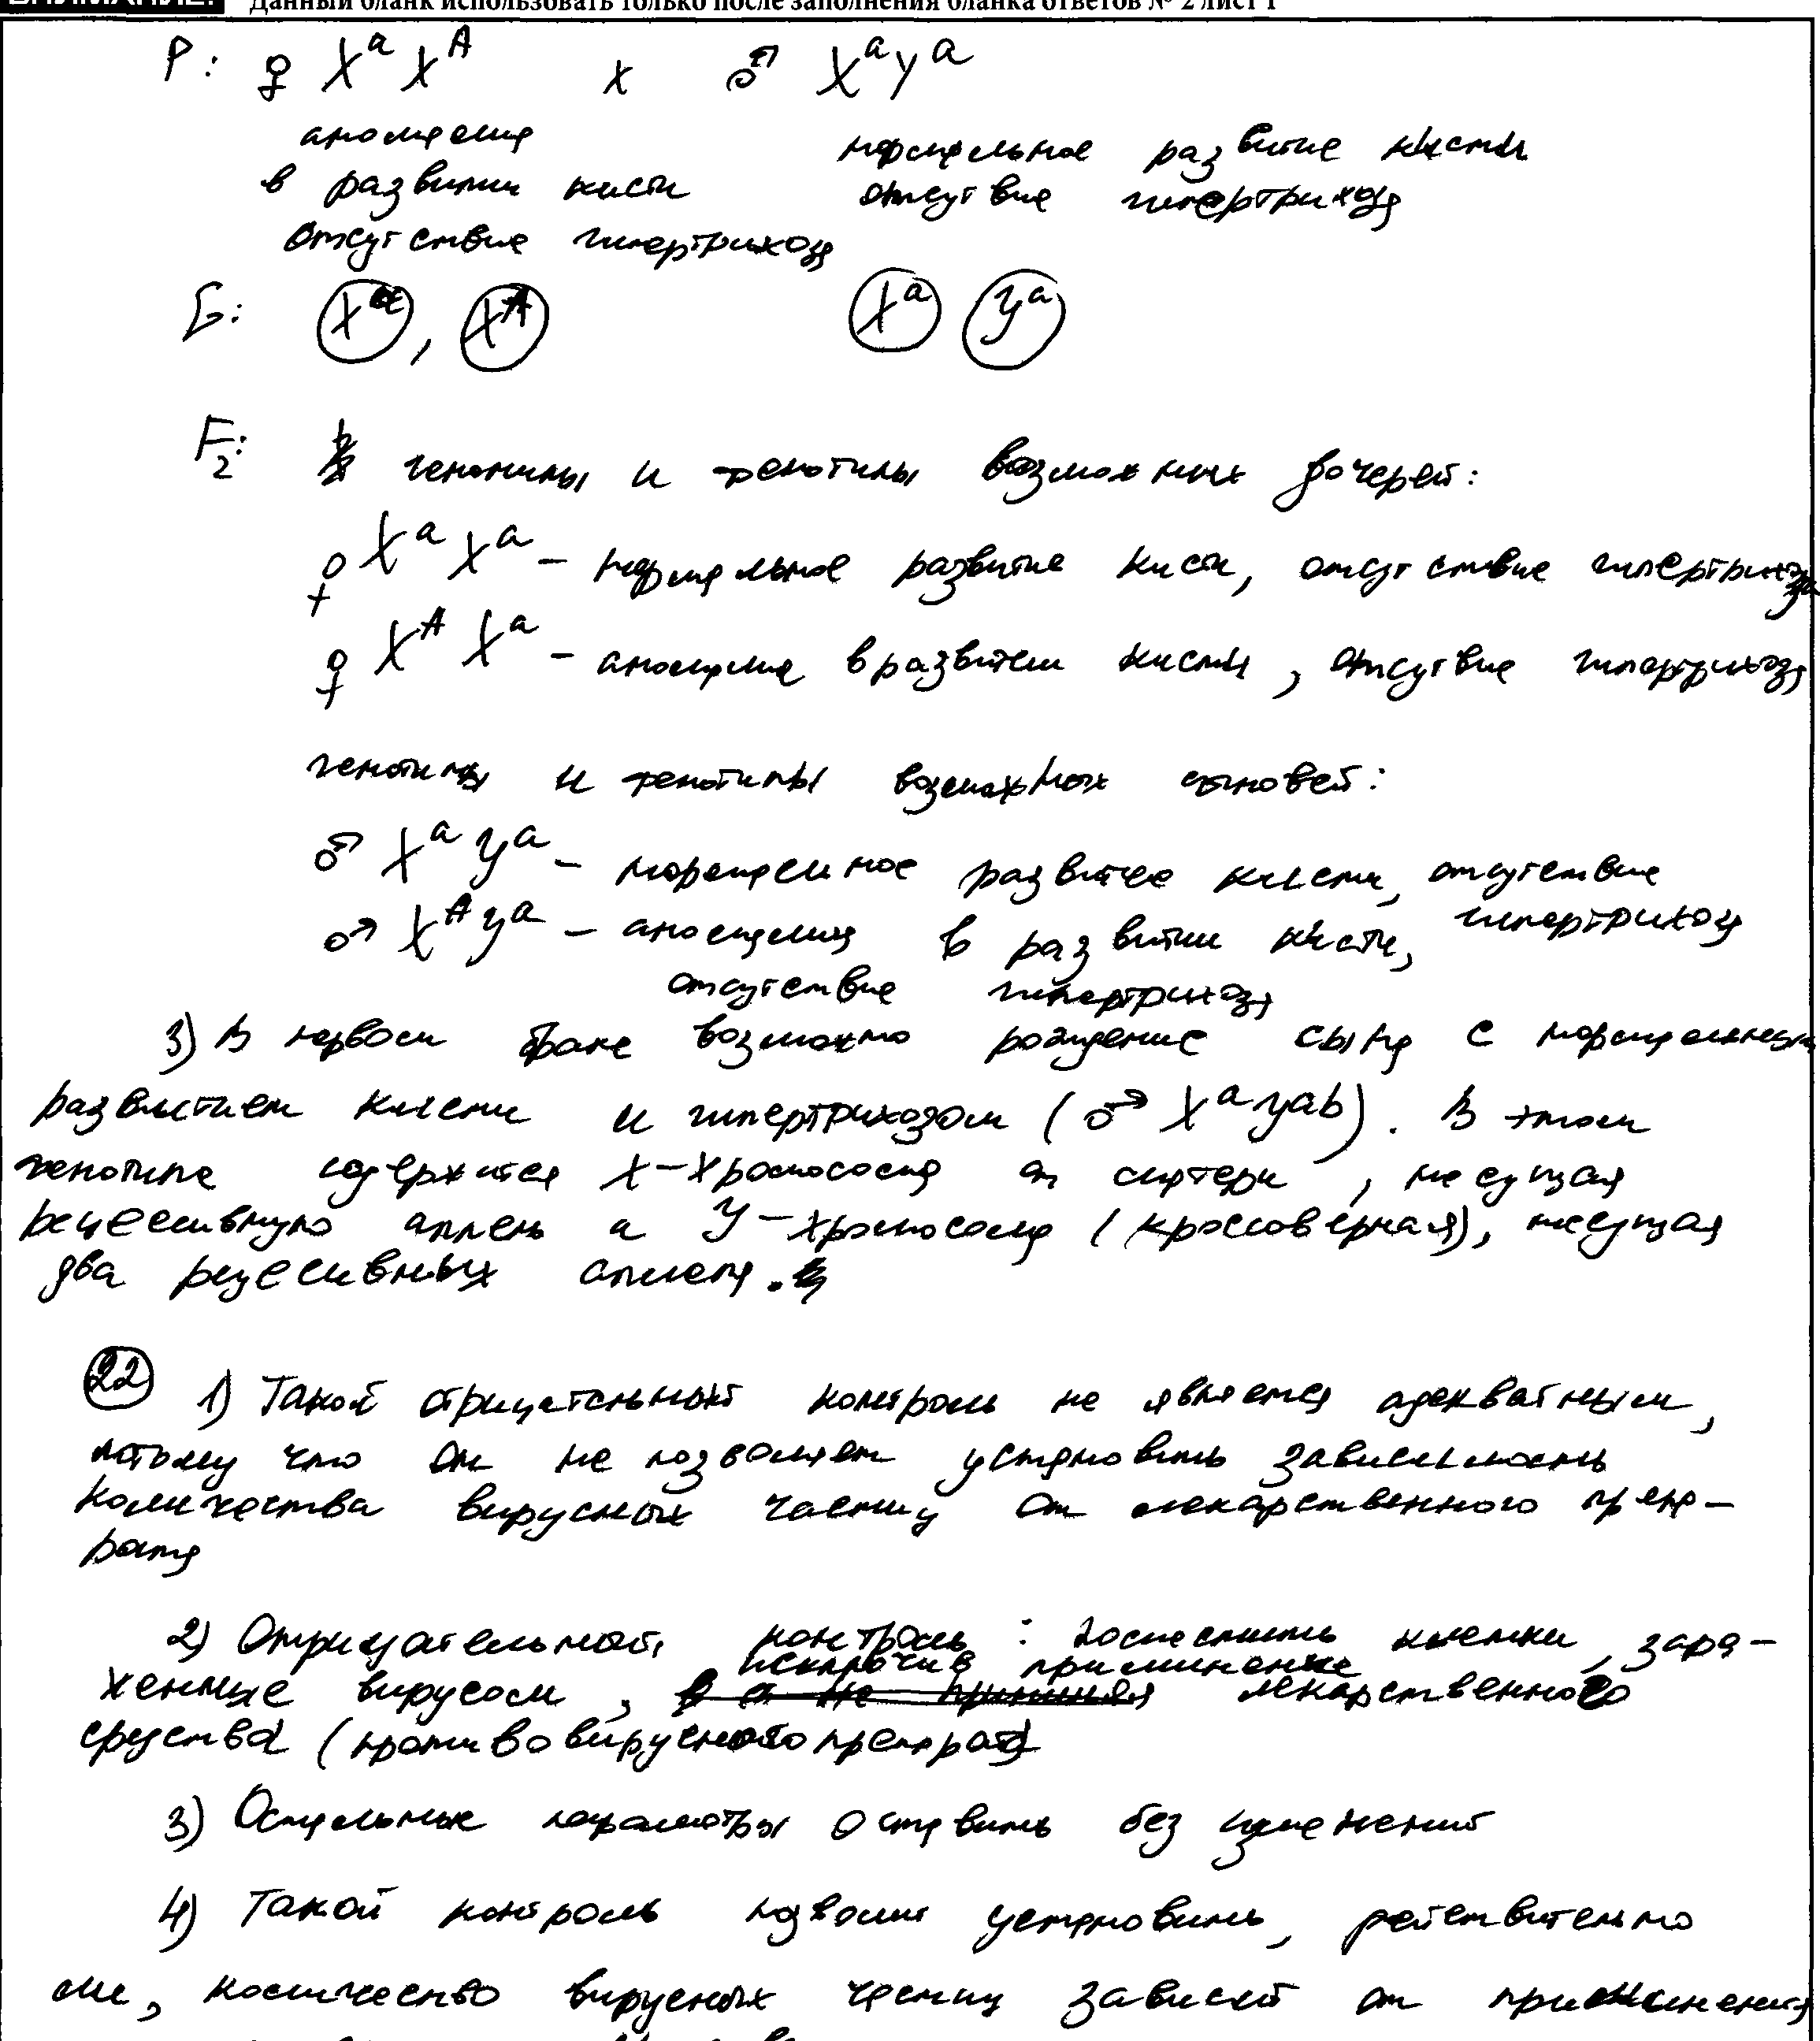 ВНИМАНИЕ! Данный бланк использовать только после заполнения бланка ответов № 2 лист 1
P: ♀ XᵃXᴬ x ♂ XᵃYᵃ
аномалия нормальное развитие кисти
в развитии кисти отсутвие гипертрихоза
отсутствие гипертрихоза
G: Xᵃ, Xᴬ Xᵃ Yᵃ
F₂: генотипы и фенотипы возможных дочерей:
♀ XᵃXᵃ – нормальное развитие кисти, отсутствие гипертрихоза
♀ XᴬXᵃ – аномалия в развитии кисти, отсутвие гипертрихоза
генотипы и фенотипы возможных сыновей:
♂ XᵃYᵃ – нормальное развитее кисти, отсутствие
гипертрихоза
♂ XᴬYᵃ – аномалия в развитии кисти,
отсутствие гипертрихоза
3) В первом браке возможно рождение сына с нормальным
развитием кисти и гипертрихозом (♂ XᵃYᵃᵇ). В этом
генотипе содержится X-хромосома от матери, несущая
рецессивную аллель а Y-хромосома (кроссоверная), несущая
два рецессивных аллеля.
22 1) Такой отрицательный контроль не является адекватным,
потому что он не позволяет установить зависимость
количества вирусных частиц от лекарственного препа-
рата
2) Отрицательный контроль: поместить клетки, зара-
женные вирусом, исключив приминение лекарственного
средства (противовирусного препарата
3) Остальные параметры оставить без изменений
4) Такой контроль позволит установить, действительно
ли, количество вирусных частиц зависит от приминения